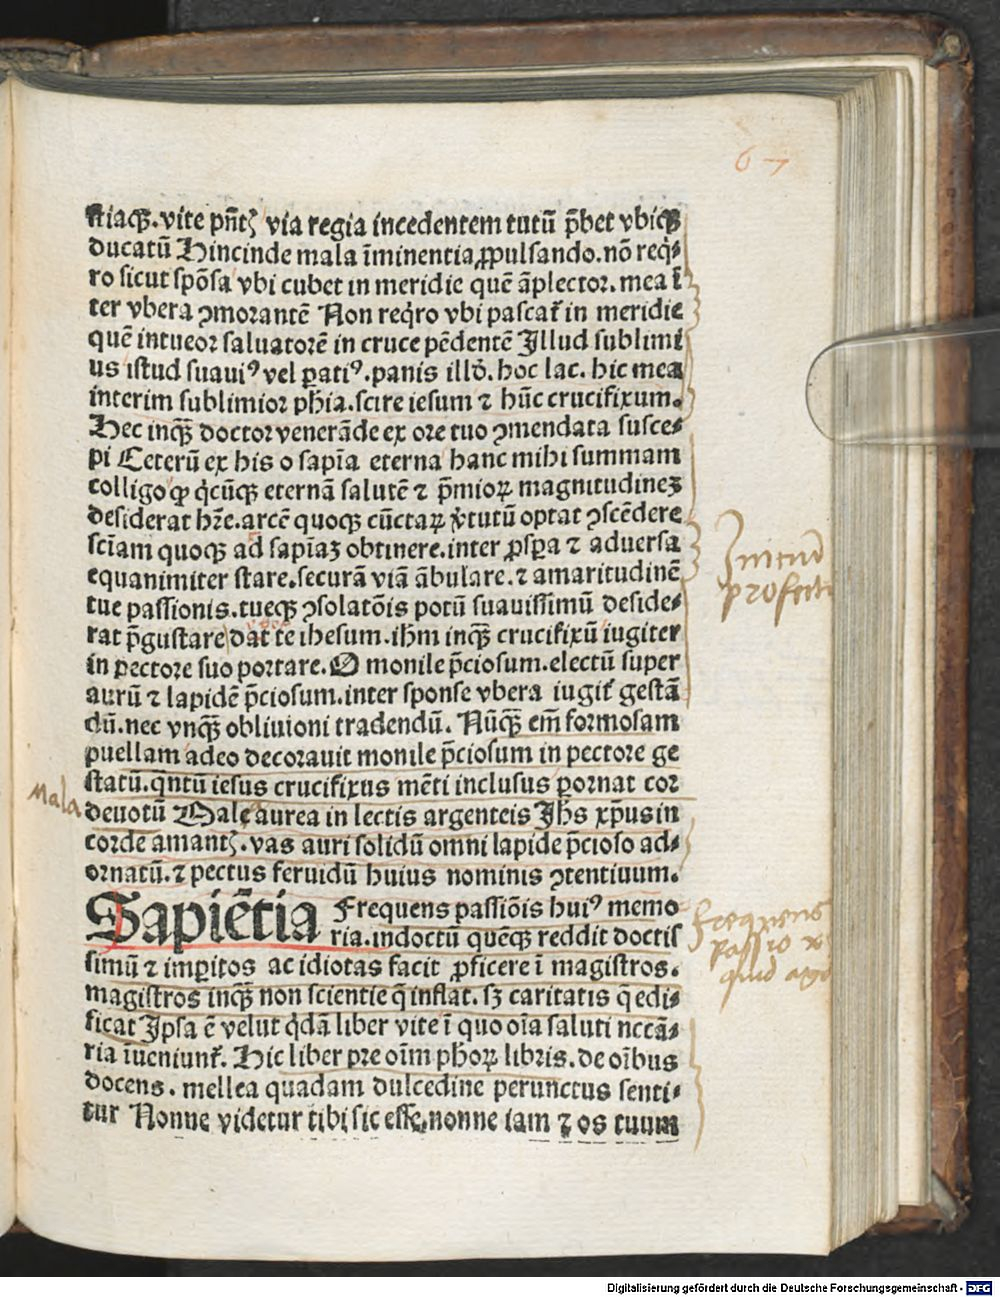 67
ſtiaqꝫ. vite pñtꝭ via regia incedentem tutū p̄bet vbiqꝫ
ducatū Hincinde mala īminentia ꝓpulsando. nō reqͥ⸗
ro sicut spōsa vbi cubet in meridie quē āplector. mea ī
ter vbera ꝯmorantē Non reqͥro vbi pascat᷑ in meridie
quē intueor saluatorē in cruce pēdentē Illud sublimi
us istud suauiꝰ vel ꝑatiꝰ. panis ille. hoc lac. hic mea
interim sublimior phīa. scire iesum ⁊ hūc crucifixum.
Hec inqꝫ doctor venerāde ex ore tuo ꝯmendata susce⸗
pi Ceterū ex his o sapīa eterna hanc mihi summam
colligo qꝙ qͥcūqꝫ eternā salutē ⁊ p̄mioꝝ magnitudineꝫ
desiderat hr̄e. arcē quoqꝫ cūctaꝝ v̓tutū optat ꝯscēdere
sciam quoqꝫ ad sapīaꝫ obtinere. inter ꝓspa ⁊ aduersa
equanimiter stare. securā viā ābulare. ⁊ amaritudinē
tue passionis. tueqꝫ ꝯsolatōis potū suauissimū deside⸗
rat p̄gustare dat te ihesum. ihm inqꝫ crucifixū iugiter
in pectore suo portare. O monile p̄ciosum. electū super
aurū ⁊ lapidē p̄ciosum. inter sponse vbera iugit᷑ gestā
dū. nec vnqꝫ obliuioni tradendū. Nūqꝫ em̄ formosam
puellam adeo decorauit monile p̄ciosum in pectore ge
statū. qͣntū iesus crucifixus mēti inclusus ꝑornat cor
Mala
deuotū Male aurea in lectis argenteis Jhs xp̄us in
corde amantꝭ. vas auri solidū omni lapide p̄cioso ad⸗
ornatū. ⁊ pectus feruidū huius nominis ꝯtentiuum.
Sapiētia Frequens passiōis huiꝰ memo
ria. indoctū quēqꝫ reddit doctis
simū ⁊ imꝑitos ac idiotas facit ꝓficere ī magistros.
magistros inqꝫ non scientie q̄ inflat. sꝫ caritatis q̄ edi⸗
ficat Ipsa ē velut qͥdā liber vite ī quo oīa saluti nccā⸗
ria īueniunt᷑. Hic liber pre oīm phoꝝ libris. de oībus
docens. mellea quadam dulcedine perunctus senti⸗
tur Nonne videtur tibi sic esse, nonne iam ⁊ os tuum
profectu
frequens
passio x
quid agit
Digitalisierung gefördert durch die Deutsche Forschungsgemeinschaft - DFG